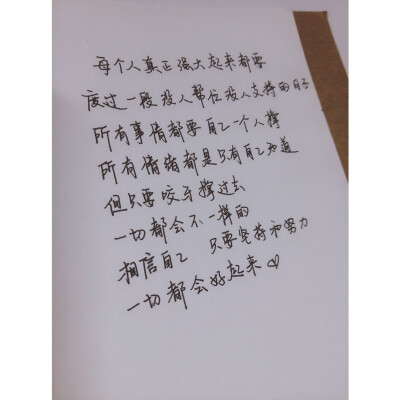 每个人真正强大起来都要
度过一段没人帮忙没人支持的日子
所有事情都要自己一个人撑
所有情绪都是只有自己知道
但只要咬牙撑过去
一切都会不一样的
相信自己 只要坚持和努力
一切都会好起来♡